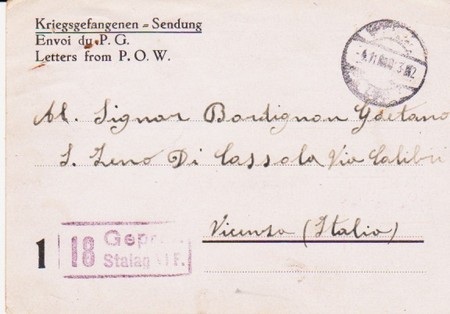 Kriegsgefangenen = Sendung
Envoi du P. G.
Letters from P. O. W.
Al Signor Bordignon Gaetano
S. Zeno Di Cassola Via Calibri
Vicenza (Italia)
1
18 Gepr
Stalag F.